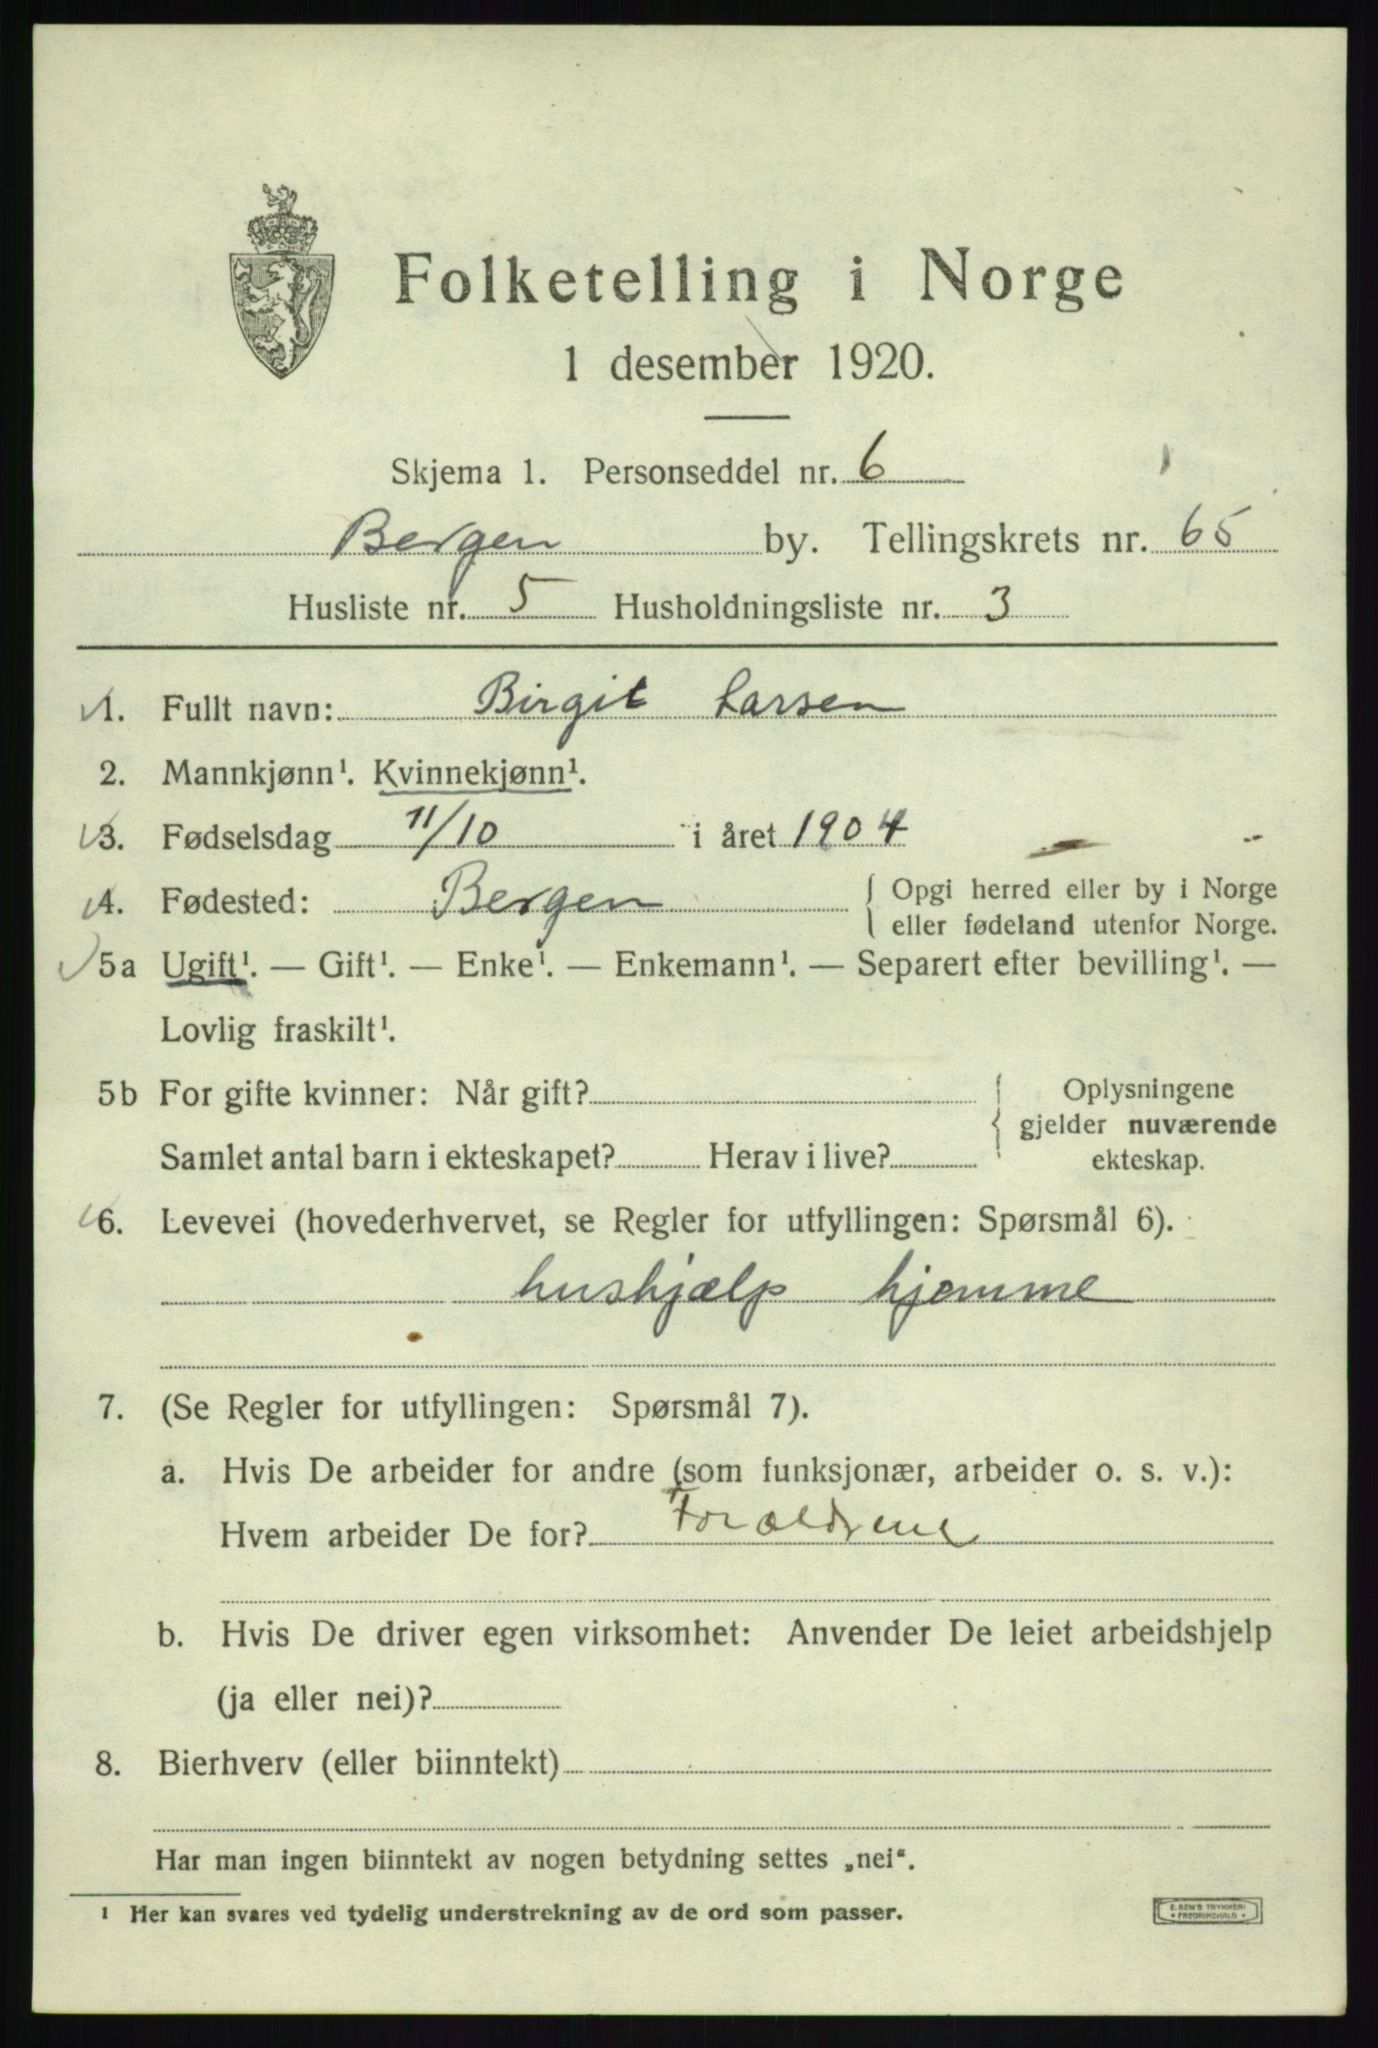 Folketelling i Norge
1 desember 1920.
Skjema 1. Personseddel nr. 6
Bergen by. Tellingskrets nr. 65
Husliste nr. 5 Husholdningsliste nr. 3
1. Fullt navn: Birgit Larsen
2. Mannkjønn¹. Kvinnekjønn¹.
3. Fødselsdag 11/10 i året 1904
4. Fødested: Bergen { Opgi herred eller by i Norge
eller fødeland utenfor Norge.
5a Ugift¹. — Gift¹. — Enke¹. — Enkemann¹. — Separert efter bevilling¹. —
Lovlig fraskilt¹.
5b For gifte kvinner: Når gift? { Oplysningene
gjelder nuværende
Samlet antal barn i ekteskapet? Herav i live? ekteskap.
6. Levevei (hovederhvervet, se Regler for utfyllingen: Spørsmål 6).
hushjælp hjemme
7. (Se Regler for utfyllingen: Spørsmål 7).
a. Hvis De arbeider for andre (som funksjonær, arbeider o. s. v.):
Hvem arbeider De for? Forældrene
b. Hvis De driver egen virksomhet: Anvender De leiet arbeidshjelp
(ja eller nei)?
8. Bierhverv (eller biinntekt)
Har man ingen biinntekt av nogen betydning settes „nei".
¹ Her kan svares ved tydelig understrekning av de ord som passer.
E. SEM'S TRYKKERI
• FREDRIKSHALD •